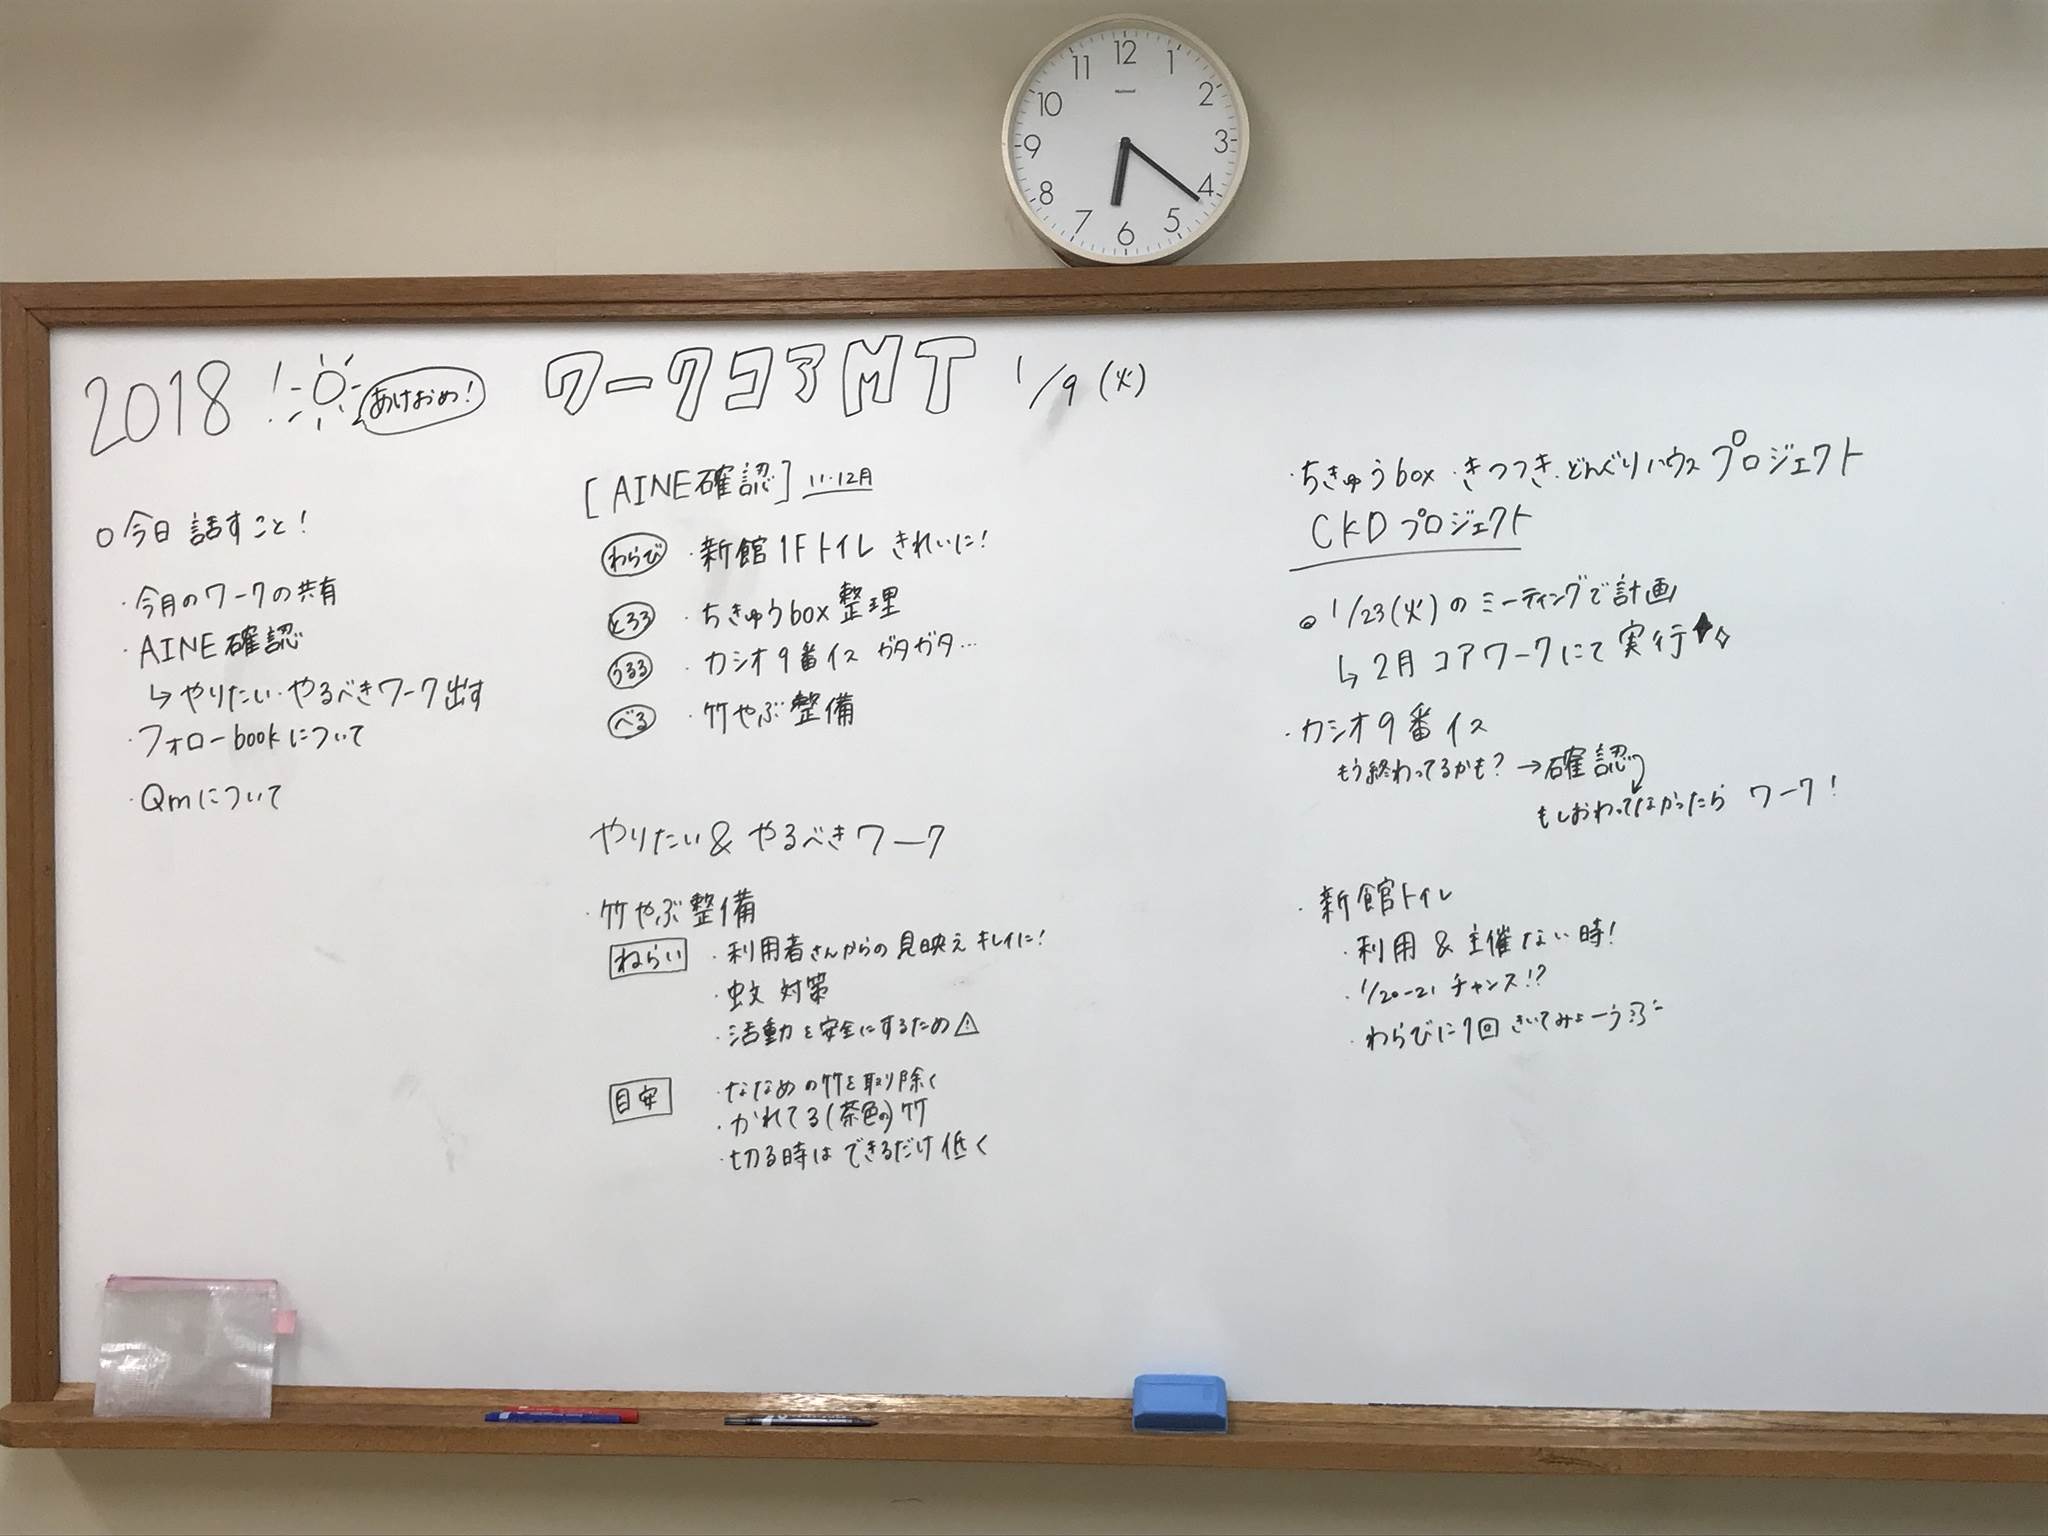 12
11
1
10
2
National
9
3
8
4
7
5
6
2018!
あけおめ!
ワークコアMT 1/9(火)
○今日話すこと!
・今月のワークの共有
・AINE確認
↳やりたい・やるべきワーク出す
・フォローbookについて
・Qmについて
[AINE確認] 11・12月
わらび ・新館1Fトイレ きれいに!
とろろ ・ちきゅうbox整理
うるる ・カシオ9番イス ガタガタ…
べる ・竹やぶ整備
やりたい&やるべきワーク
・竹やぶ整備
ねらい ・利用者さんからの見映えキレイに!
・蚊対策
・活動を安全にするため⚠
目安 ・ななめの竹を取り除く
・かれてる(茶色の)竹
・切る時はできるだけ低く
・ちきゅうbox・きつつき・どんぐりハウスプロジェクト
CKDプロジェクト
◎1/23(火)のミーティングで計画
↳2月コアワークにて実行
・カシオ9番イス
もう終わってるかも?→確認
もしおわってなかったら ワーク!
・新館トイレ
・利用&主催ない時!
・1/20-21 チャンス!?
・わらびに1回きいてみよーう